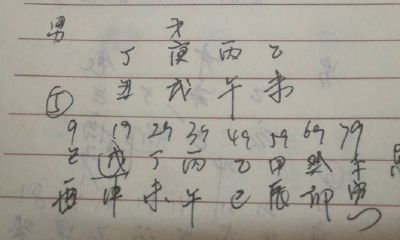 男
丁 庚 丙 乙
丑 戌 午 未
9 19 29 39 49 59 69 79
己 戊 丁 丙 乙 甲 癸 壬
酉 申 未 午 巳 辰 卯 寅